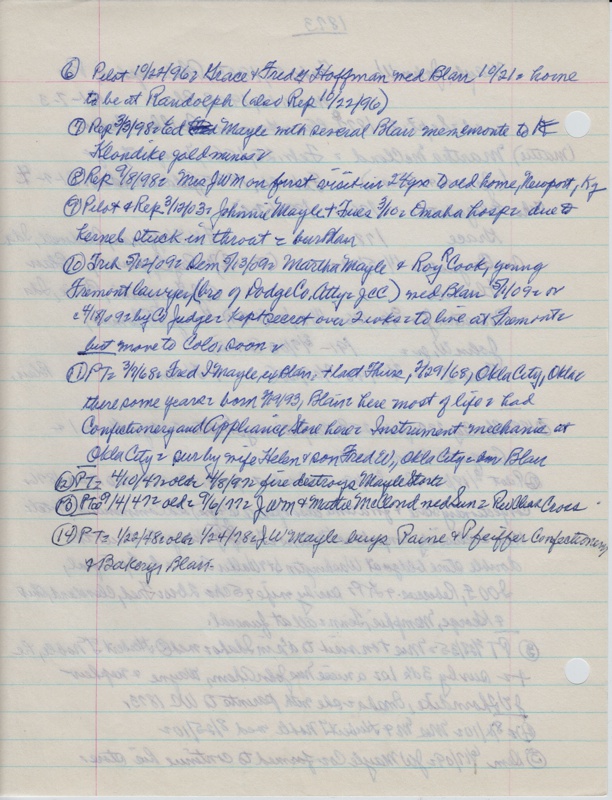 1893
⑥ Pilot 10/22/96 = Grace & Fred Y Hoffman med Blair 10/21 = home
to be at Randolph (also Rep 10/22/96)
⑦ Rep 3/3/98 = Ed Mayle with several Blair men enroute to
Klondike gold mines =
⑧ Rep 9/8/98 = Mrs JWM on first visit in 24 yrs to old home, Newport, Ky
⑨ Pilot & Rep 3/12/03 = Johnnie Mayle + Tues 3/10 = Omaha hosp = due to
kernel stuck in throat =
⑩ Trib 5/12/09 = Dem 5/13/09 = Martha Mayle & Roy Cook, young
Fremont lawyer (bro of Dodge Co. Atty = JCC) med Blair or
= 4/18/09 = by Co Judge = kept secret over 2 weeks to live at Fremont =
but move to Colo. soon =
⑪ PT = 3/7/68 = Fred I Mayle, ex Blair, + last Thurs, 2/29/68, Okla City, Okla =
there some years = born 3/19/93, Blair = here most of life = had
Confectionery and Appliance Store here = Instrument mechanic at
Okla City = sur by wife Helen & son Fred W, Okla City = bur Blair
⑫ PT = 4/10/47 = older 4/8/97 = fire destroys Mayle Store
⑬ PT = 9/4/47 = older 9/6/77 = JWM & Mattie McCord med Sun =
⑭ PT = 1/22/48 = older 1/24/78 = J W Mayle buys Paine & Pfeiffer Confectionery
& Bakery, Blair.